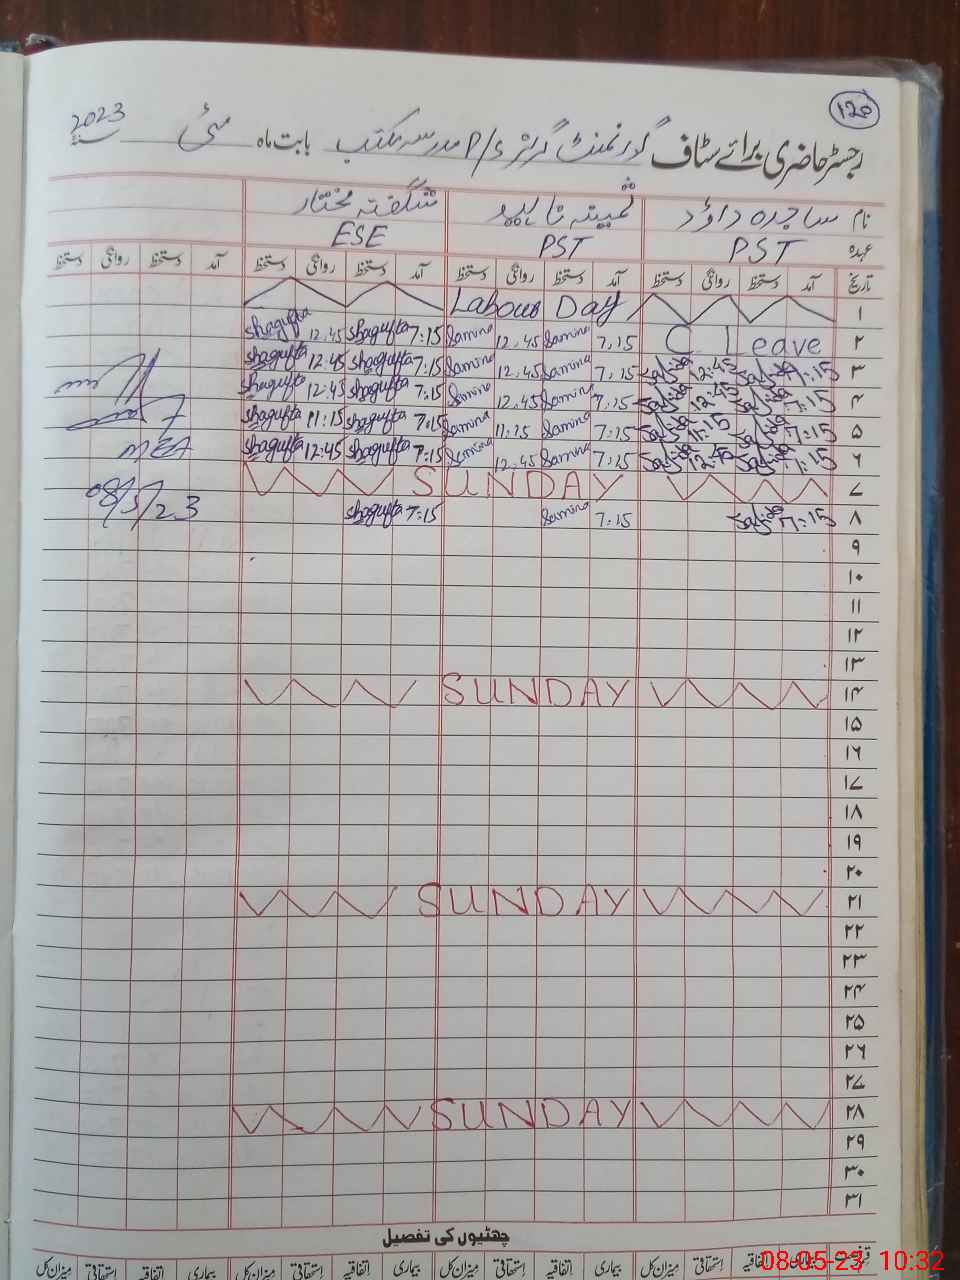 120
رجسٹر حاضری برائے سٹاف گورنمنٹ گرلز P/S مدرسہ مکتب بابت ماہ مئی سنہ 2023
نام ساجدہ داؤد ثمینہ ناہید شگفتہ مختار
عہدہ PST PST ESE
تاریخ آمد دستخط روانگی دستخط آمد دستخط روانگی دستخط آمد دستخط روانگی دستخط آمد دستخط روانگی دستخط
۱ Labour Day
۲ C. Leave 7:15 Samina 12:45 Samina 7:15 Shagufta 12:45 Shagufta
۳ 7:15 Sajida 12:45 Sajida 7:15 Samina 12:45 Samina 7:15 Shagufta 12:45 Shagufta
۴ 7:15 Sajida 12:45 Sajida 7:15 Samina 12:45 Samina 7:15 Shagufta 12:45 Shagufta
۵ 7:15 Sajida 11:15 Sajida 7:15 Samina 11:15 Samina 7:15 Shagufta 11:15 Shagufta
۶ 7:15 Sajida 12:45 Sajida 7:15 Samina 12:45 Samina 7:15 Shagufta 12:45 Shagufta
۷ SUNDAY
۸ 7:15 Sajida 7:15 Samina 7:15 Shagufta
08/5/23
۹
۱۰
۱۱
۱۲
۱۳
۱۴ SUNDAY
۱۵
۱۶
۱۷
۱۸
۱۹
۲۰
۲۱ SUNDAY
۲۲
۲۳
۲۴
۲۵
۲۶
۲۷
۲۸ SUNDAY
۲۹
۳۰
۳۱
چھٹیوں کی تفصیل
اتفاقیہ استحقاقی میزان کل بیماری اتفاقیہ استحقاقی میزان کل بیماری اتفاقیہ استحقاقی میزان کل بیماری اتفاقیہ استحقاقی میزان کل
08-05-23 10:32